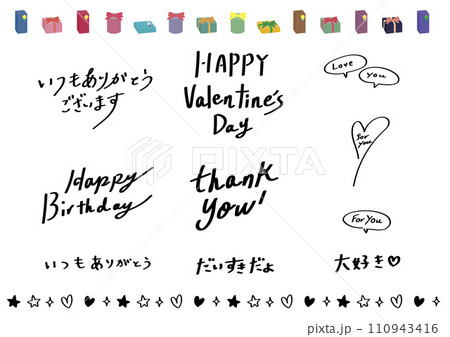 いつもありがとう
ございます
HAPPY
Valentine's
Day
Love
you
for
you
Happy
Birthday
thank
you!
For You
いつもありがとう
だいすきだよ
大好き♡
pixta.jp - 110943416